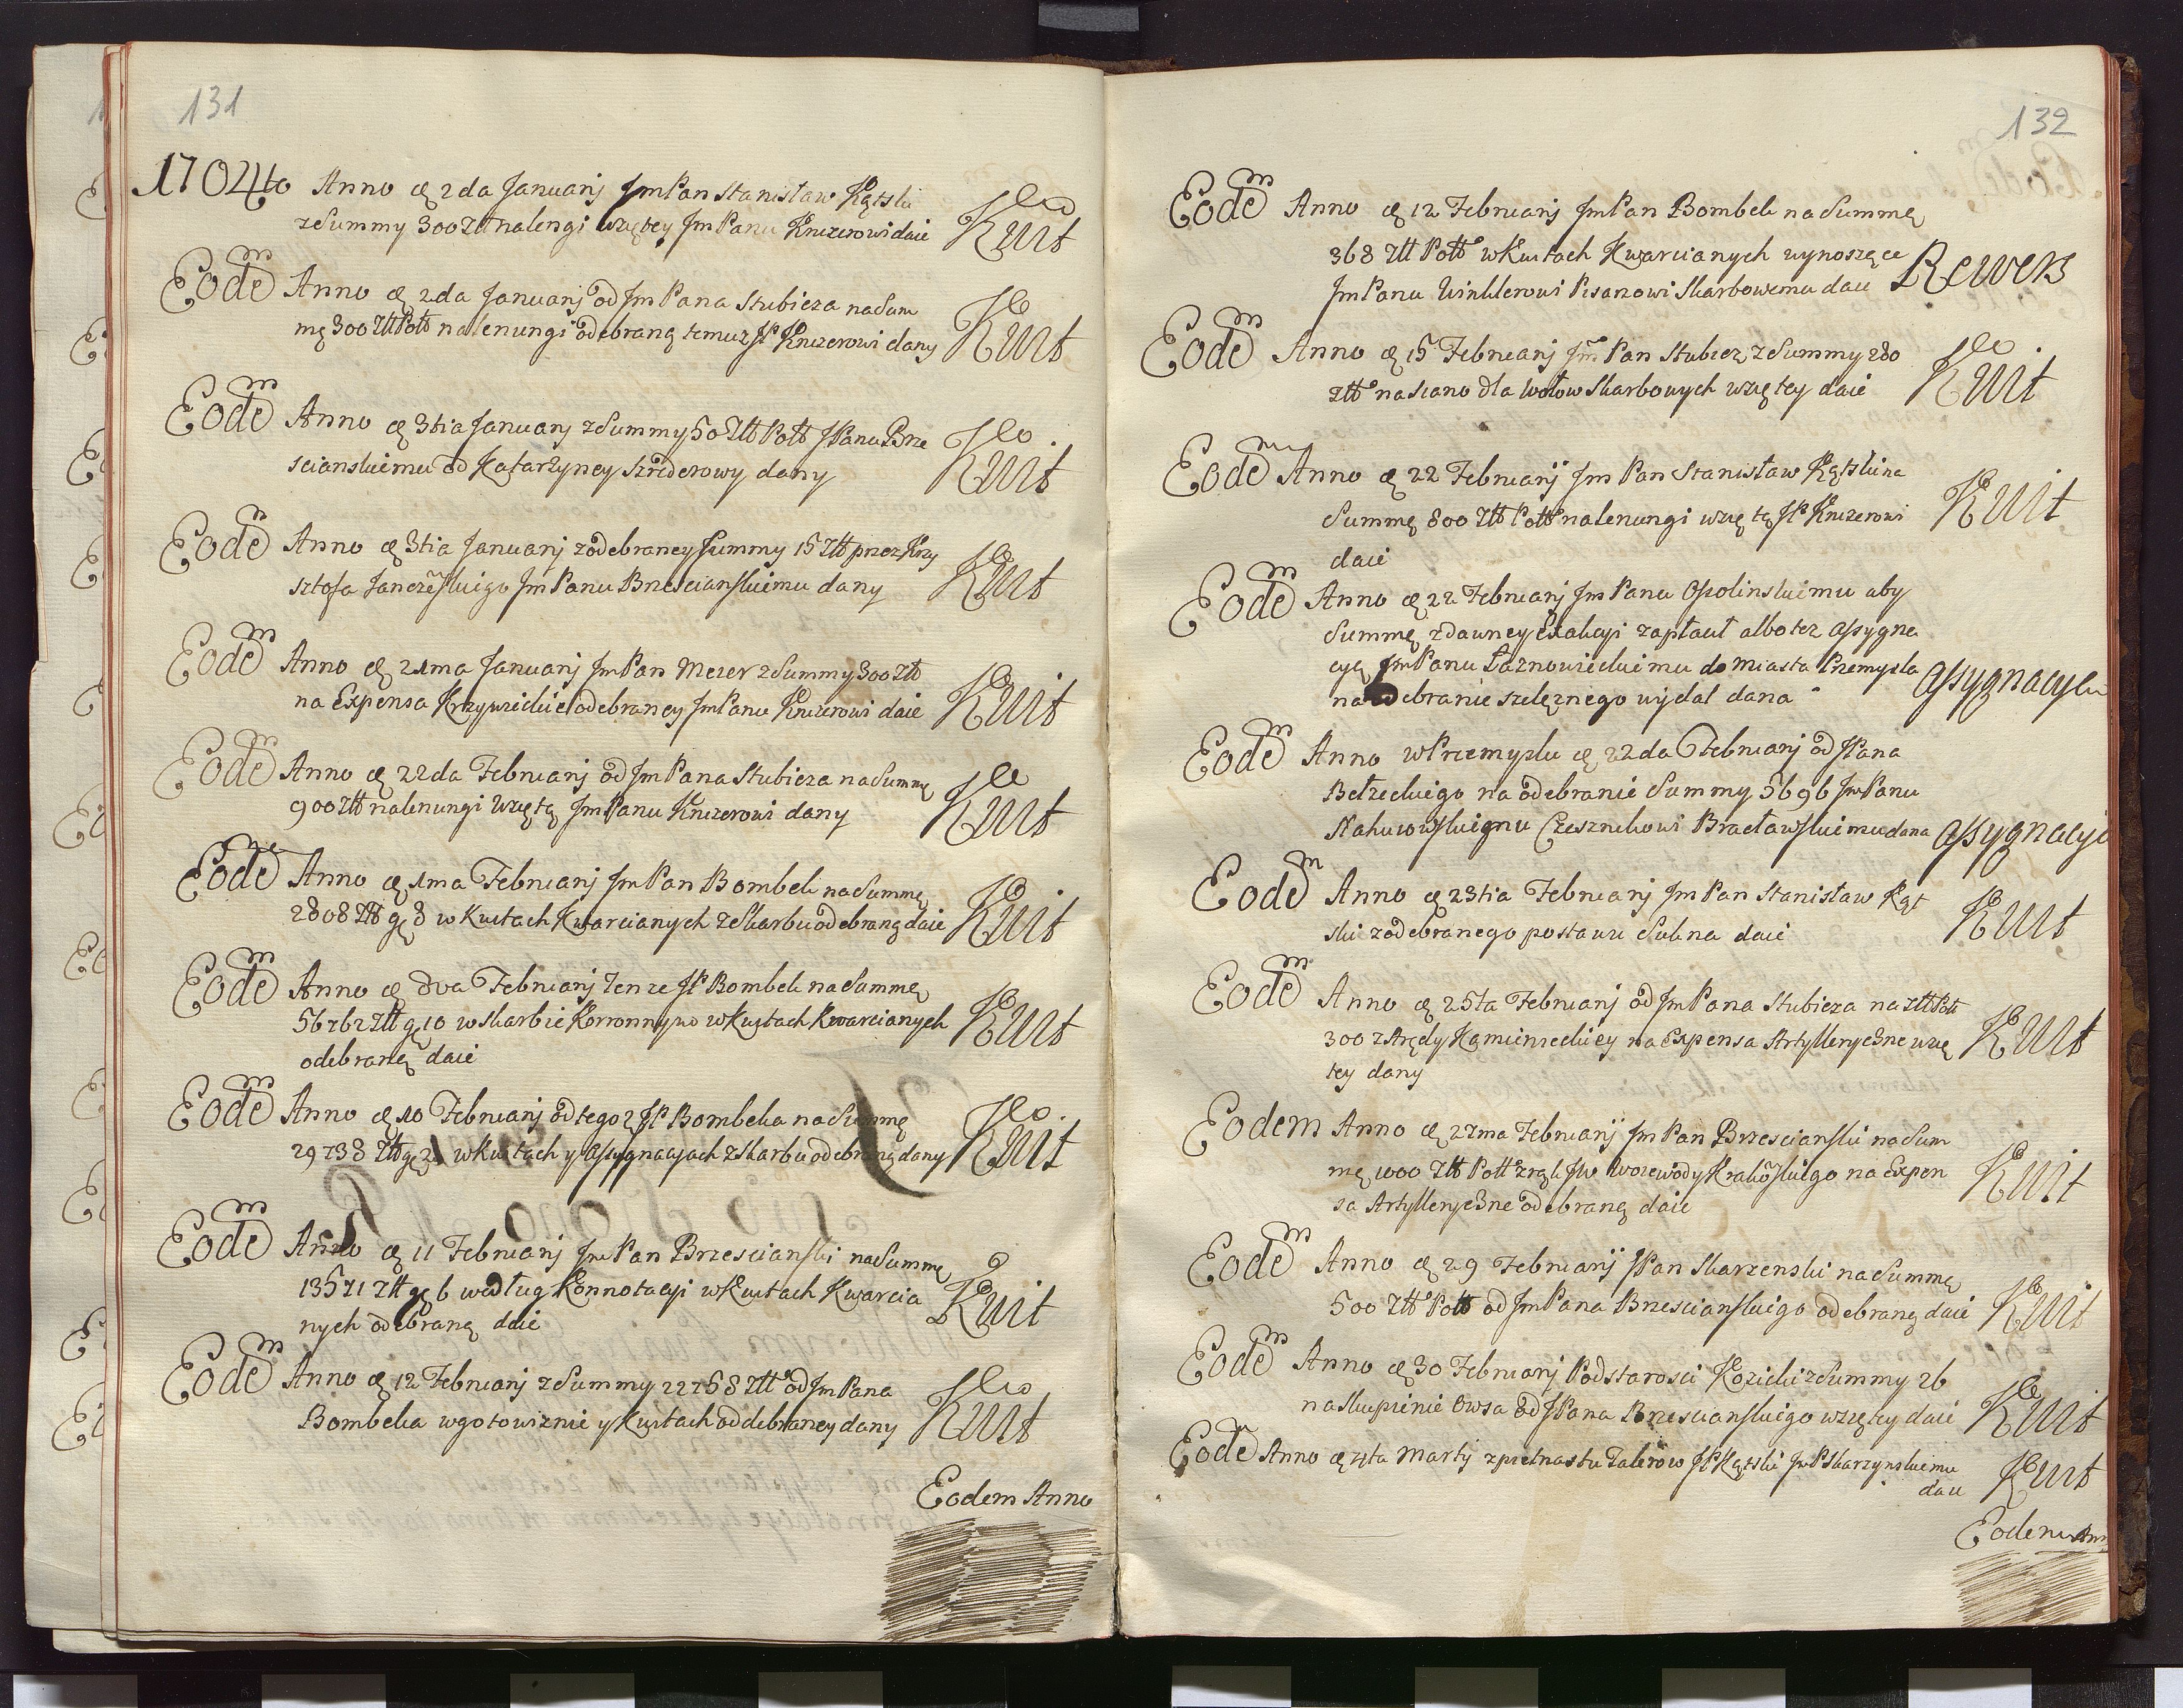 131
1704to Anno die 2da Januarij JmPan Stanisław Kątski
z Summy 300 Zł na lengi wziętey Jm Panu Knezerowi daie Kwit
Eodem Anno die 2da Januarij od Jm Pana Stubicza na Sum
mę 300 Złł Poll na lenungi odebraną temuż JP Knezerowi dany Kwit
Eodem Anno die 3tia Januarij z Summy 50 Złł Poll JPanu Brze
scianskiemu od Katarzyney Szriderowy dany Kwit
Eodem Anno die 3tia Januarij z odebraney Summy 15 Złł przez Krzy
sztofa Janczeskiego Jm Panu Brzescianskiemu dany Kwit
Eodem Anno die 21ma Januarij Jm Pan Mezer z Summy 300 Złł
na Expensa Krzywieckie odebraney Jm Panu Knezerowi daie Kwit
Eodem Anno die 22da Februarij od Jm Pana Stubicza na Summę
900 Złł na lenungi wziętą Jm Panu Knezerowi dany Kwit
Eodem Anno die 1ma Februarij Jm Pan Bombek na Summę
2808 Złł gr 8 w Kwitach Kwarcianych z Skarbu odebraną daie Kwit
Eodem Anno die 2va Februarij Tenze JP Bombek na Summę
56762 Złł gr 10 w skarbie Koronnym w Kwitach Kwarcianych
odebraną daie Kwit
Eodem Anno die 10 Februarij od tegoz JP Bombeka na Summę
29738 Złł gr 21 w Kwitach y Assygnacyach z Skarbu odebraną dany Kwit
Eodem Anno die 11 Februarij Jm Pan Brzescianski na Summę
13571 Złł gr 6 według Konnotacyi w Kwitach Kwarcia
nych odebraną daie Kwit
Eodem Anno die 12 Februarij z Summy 22758 Złł od Jm Pana
Bombeka w gotowiznie y Kwitach oddebraney dany Kwit
Eodem Anno
132
Eodem Anno die 12 Februarij Jm Pan Bombek na Summę
368 Złł Poll w Kwitach Kwarcianych wynoszące
Jm Panu Winklerowi Pisarzowi Skarbowemu daie Rewers
Eodem Anno die 15 Februarij Jm Pan Stubicz z Summy 280
Złł na siano dla wołow Skarbowych wziętey daie Kwit
Eodem Anno die 22 Februarij Jm Pan Stanisław Kątski na
Summę 800 Złł Poll na lenungi wziętą JP Knezerowi Kwit
daie
Eodem Anno die 22 Februarij Jm Panu Ossolinskiemu aby
Summę z dawney Exakcyi zapłacił albo też Assygna
cyą Jm Panu Łaznowieckiemu do Miasta Przemysla
na odebranie szelęznego wydał dana Assygnacyia
Eodem Anno w Przemyslu die 22da Februarij od JPana
Bełzeckiego na odebranie Summy 5696 Jm Panu
Stahuiowskiemu Czesznikowi Bracławskiemu dana Assygnacyi
Eodem Anno die 23tia Februarij Jm Pan Stanisław Kąt
ski z odebranego postawu Sukna daie Kwit
Eodem Anno die 25ta Februarij od Jm Pana Stubicza na Złł Poll
300 z Arędy Kamienieckiey na Expensa Artylleryczne wzię
tey dany Kwit
Eodem Anno die 27ma Februarij Jm Pan Brzescianski na Sum
mę 1000 Złł Poll z rąk JW Woiewody Krakoskiego na Expen
sa Artylleryczne odebraną daie Kwit
Eodem Anno die 29 Februarij JPan Skarzenski na Summę
500 Złł Poll od Jm Pana Brzescianskiego odebraną daie Kwit
Eodem Anno die 30 Februarij Podstarosci Kozicki z Summy 26
na skupienie Owsa od JPana Brzescianskiego wziętey daie Kwit
Eodem Anno die 4ta Martij z pietnastu Talerow JP Kątski Jm P Skarzynskiemu
daie Kwit
Eodem Ann